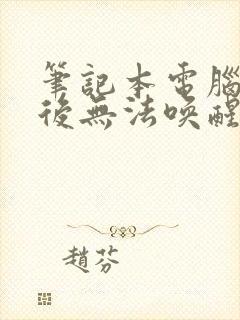 筆記本電腦
後無法喚醒
趙芬